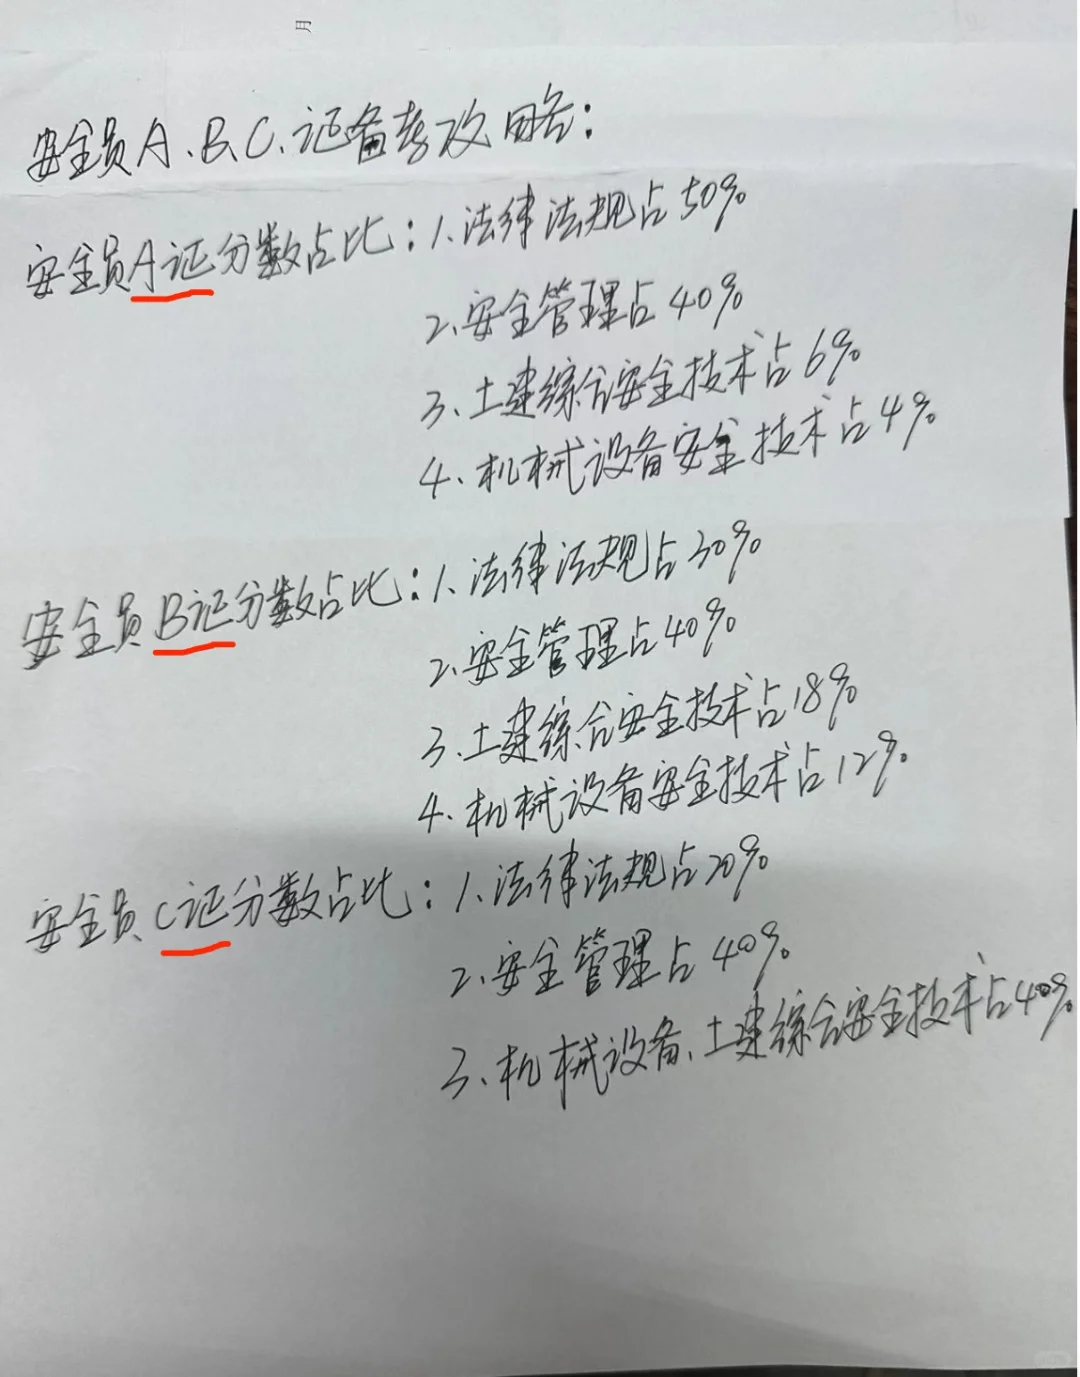 安全员A、B、C、证备考攻略：
安全员A证分数占比：1.法律法规占50%
2.安全管理占40%
3.土建综合安全技术占6%
4.机械设备安全技术占4%
安全员B证分数占比：1.法律法规占30%
2.安全管理占40%
3.土建综合安全技术占18%
4.机械设备安全技术占12%
安全员C证分数占比：1.法律法规占20%
2.安全管理占40%
3.机械设备、土建综合安全技术占40%